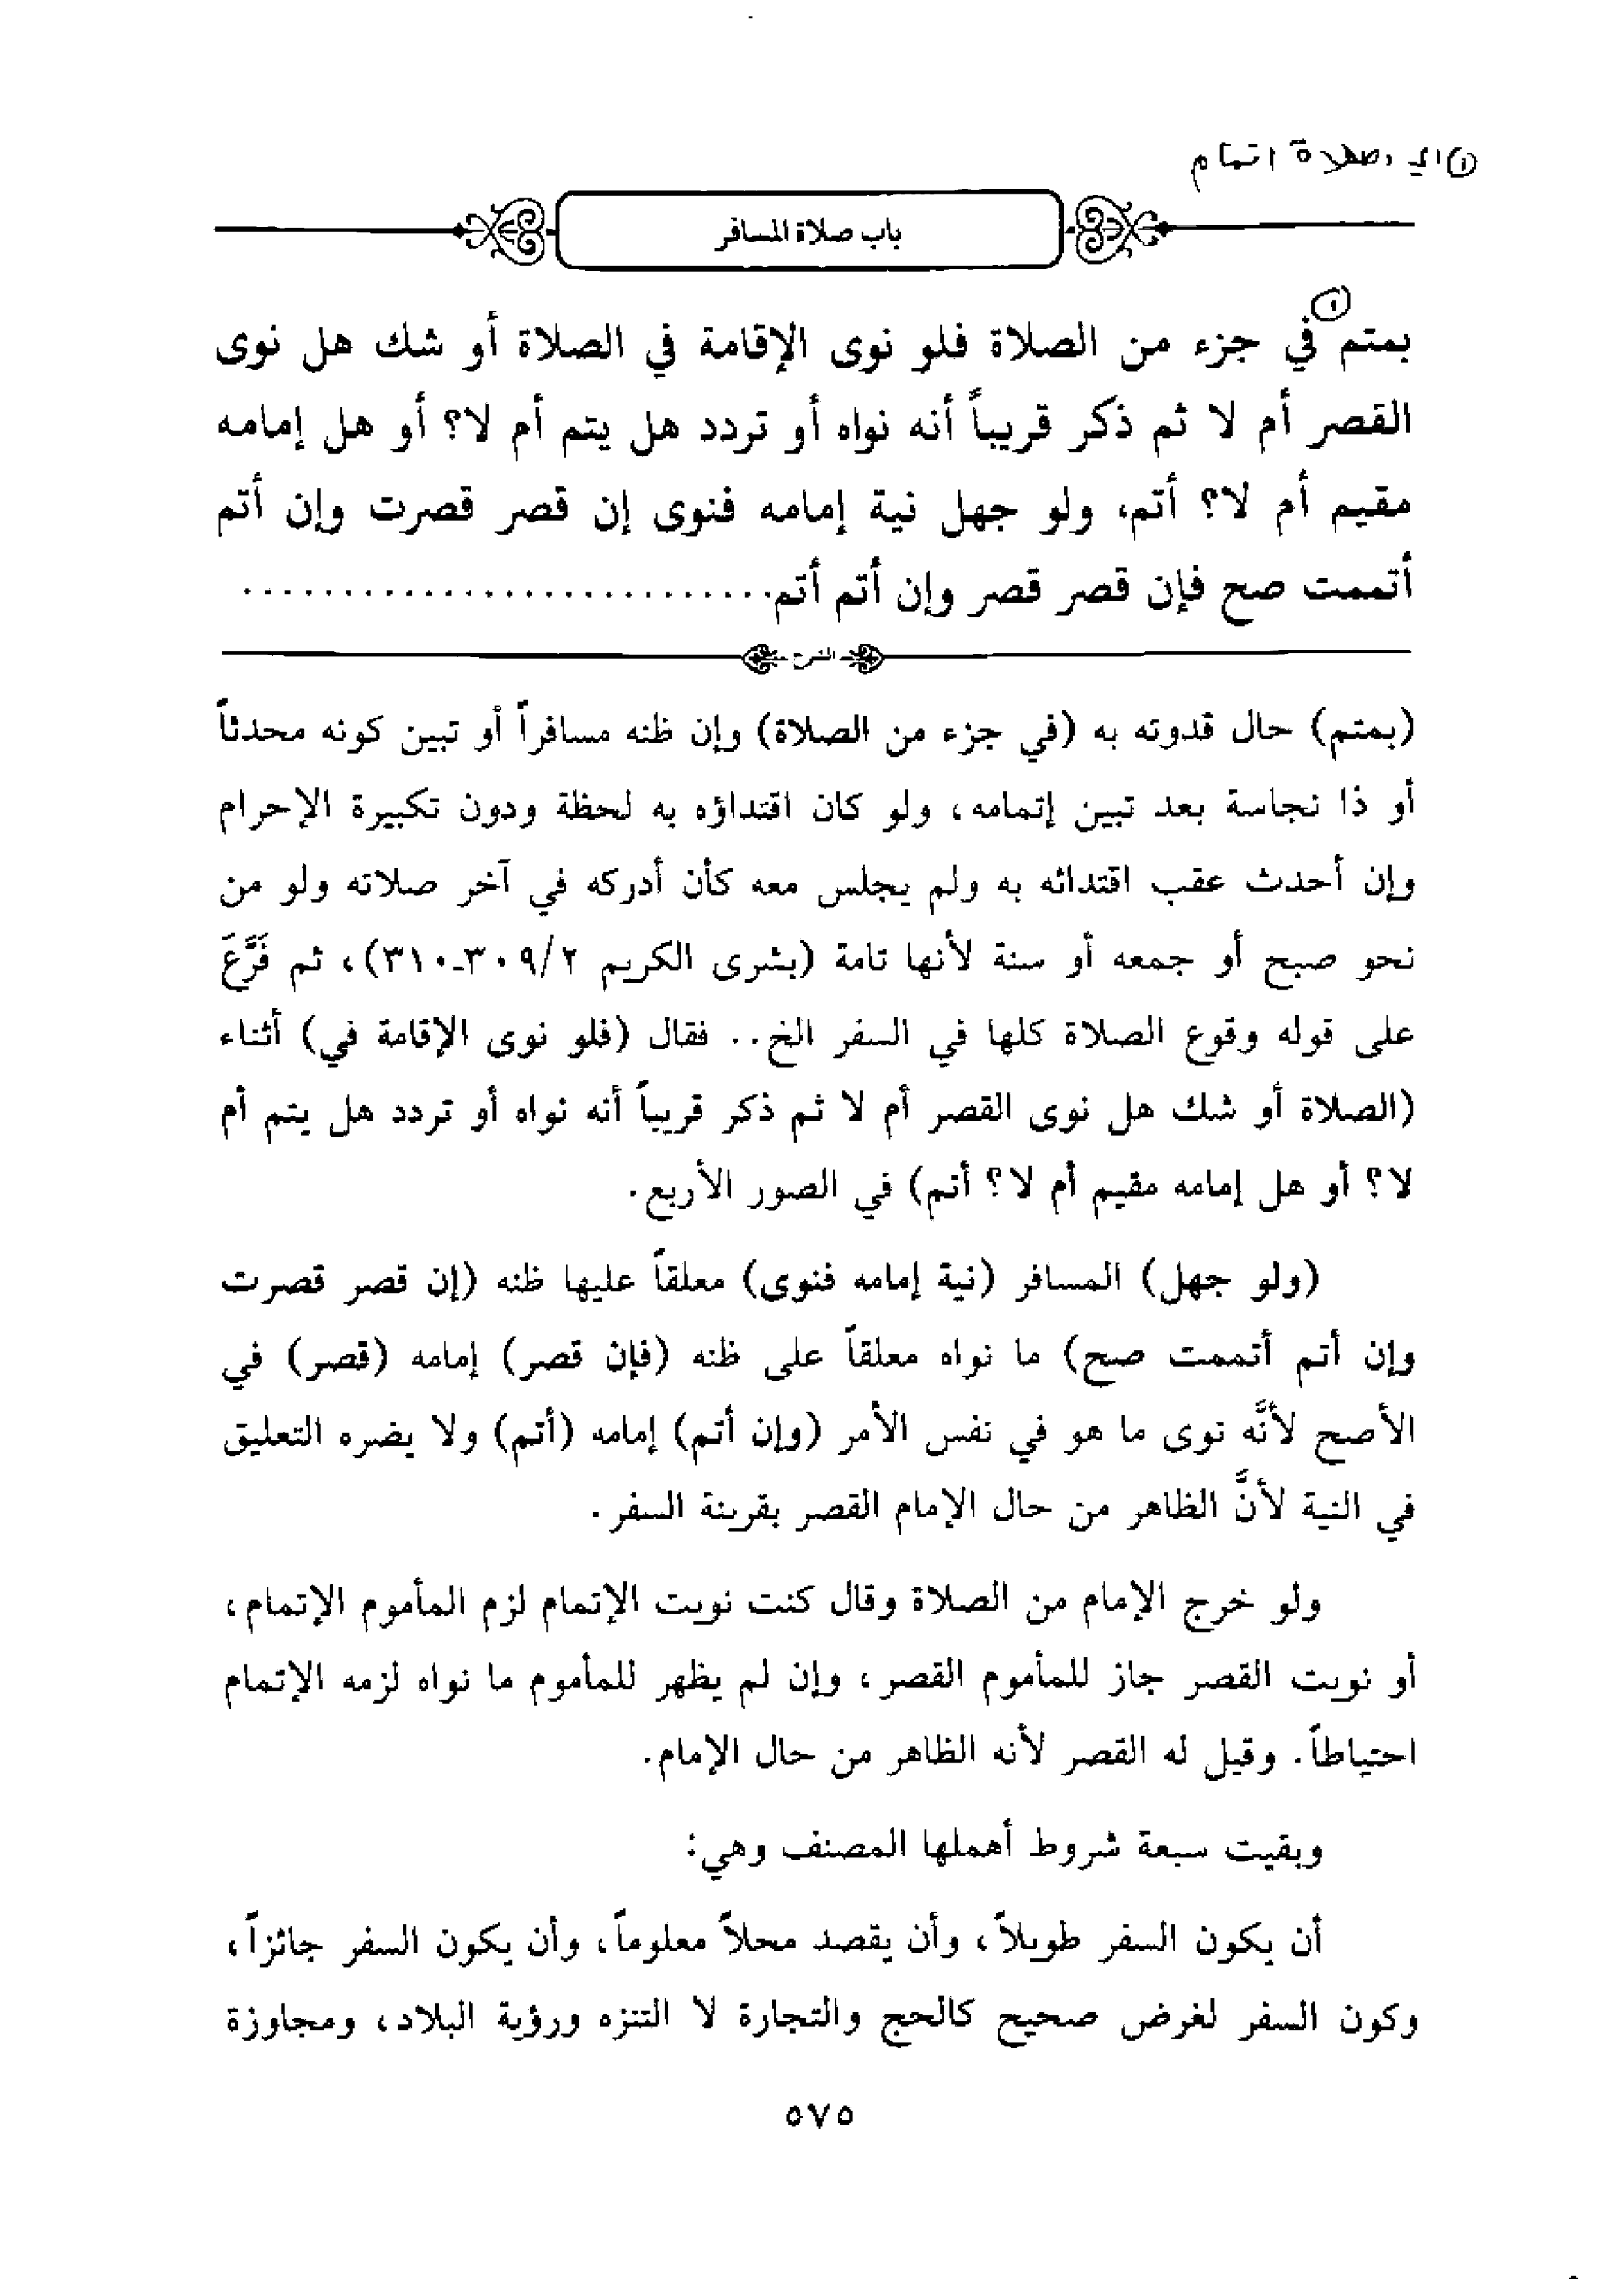 (١) اي صلاة اتمام
باب صلاة المسافر
(١)
بمتم في جزء من الصلاة فلو نوى الإقامة في الصلاة أو شك هل نوى
القصر أم لا ثم ذكر قريباً أنه نواه أو تردد هل يتم أم لا؟ أو هل إمامه
مقيم أم لا؟ أتم، ولو جهل نية إمامه فنوى إن قصر قصرت وإن أتم
أتممت صح فإن قصر قصر وإن أتم أتم..............................
الشرح
(بمتم) حال قدوته به (في جزء من الصلاة) وإن ظنه مسافراً أو تبين كونه محدثاً
أو ذا نجاسة بعد تبين إتمامه، ولو كان اقتداؤه به لحظة ودون تكبيرة الإحرام
وإن أحدث عقب اقتدائه به ولم يجلس معه كأن أدركه في آخر صلاته ولو من
نحو صبح أو جمعه أو سنة لأنها تامة (بشرى الكريم ٣٠٩/٢-٣١٠)، ثم فَرَّعَ
على قوله وقوع الصلاة كلها في السفر الخ.. فقال (فلو نوى الإقامة في) أثناء
(الصلاة أو شك هل نوى القصر أم لا ثم ذكر قريباً أنه نواه أو تردد هل يتم أم
لا؟ أو هل إمامه مقيم أم لا؟ أتم) في الصور الأربع.
(ولو جهل) المسافر (نية إمامه فنوى) معلقاً عليها ظنه (إن قصر قصرت
وإن أتم أتممت صح) ما نواه معلقاً على ظنه (فإن قصر) إمامه (قصر) في
الأصح لأنَّه نوى ما هو في نفس الأمر (وإن أتم) إمامه (أتم) ولا يضره التعليق
في النية لأنَّ الظاهر من حال الإمام القصر بقرينة السفر.
ولو خرج الإمام من الصلاة وقال كنت نويت الإتمام لزم المأموم الإتمام،
أو نويت القصر جاز للمأموم القصر، وإن لم يظهر للمأموم ما نواه لزمه الإتمام
احتياطاً. وقيل له القصر لأنه الظاهر من حال الإمام.
وبقيت سبعة شروط أهملها المصنف وهي:
أن يكون السفر طويلاً، وأن يقصد محلاً معلوماً، وأن يكون السفر جائزاً،
وكون السفر لغرض صحيح كالحج والتجارة لا التنزه ورؤية البلاد، ومجاوزة
٥٧٥